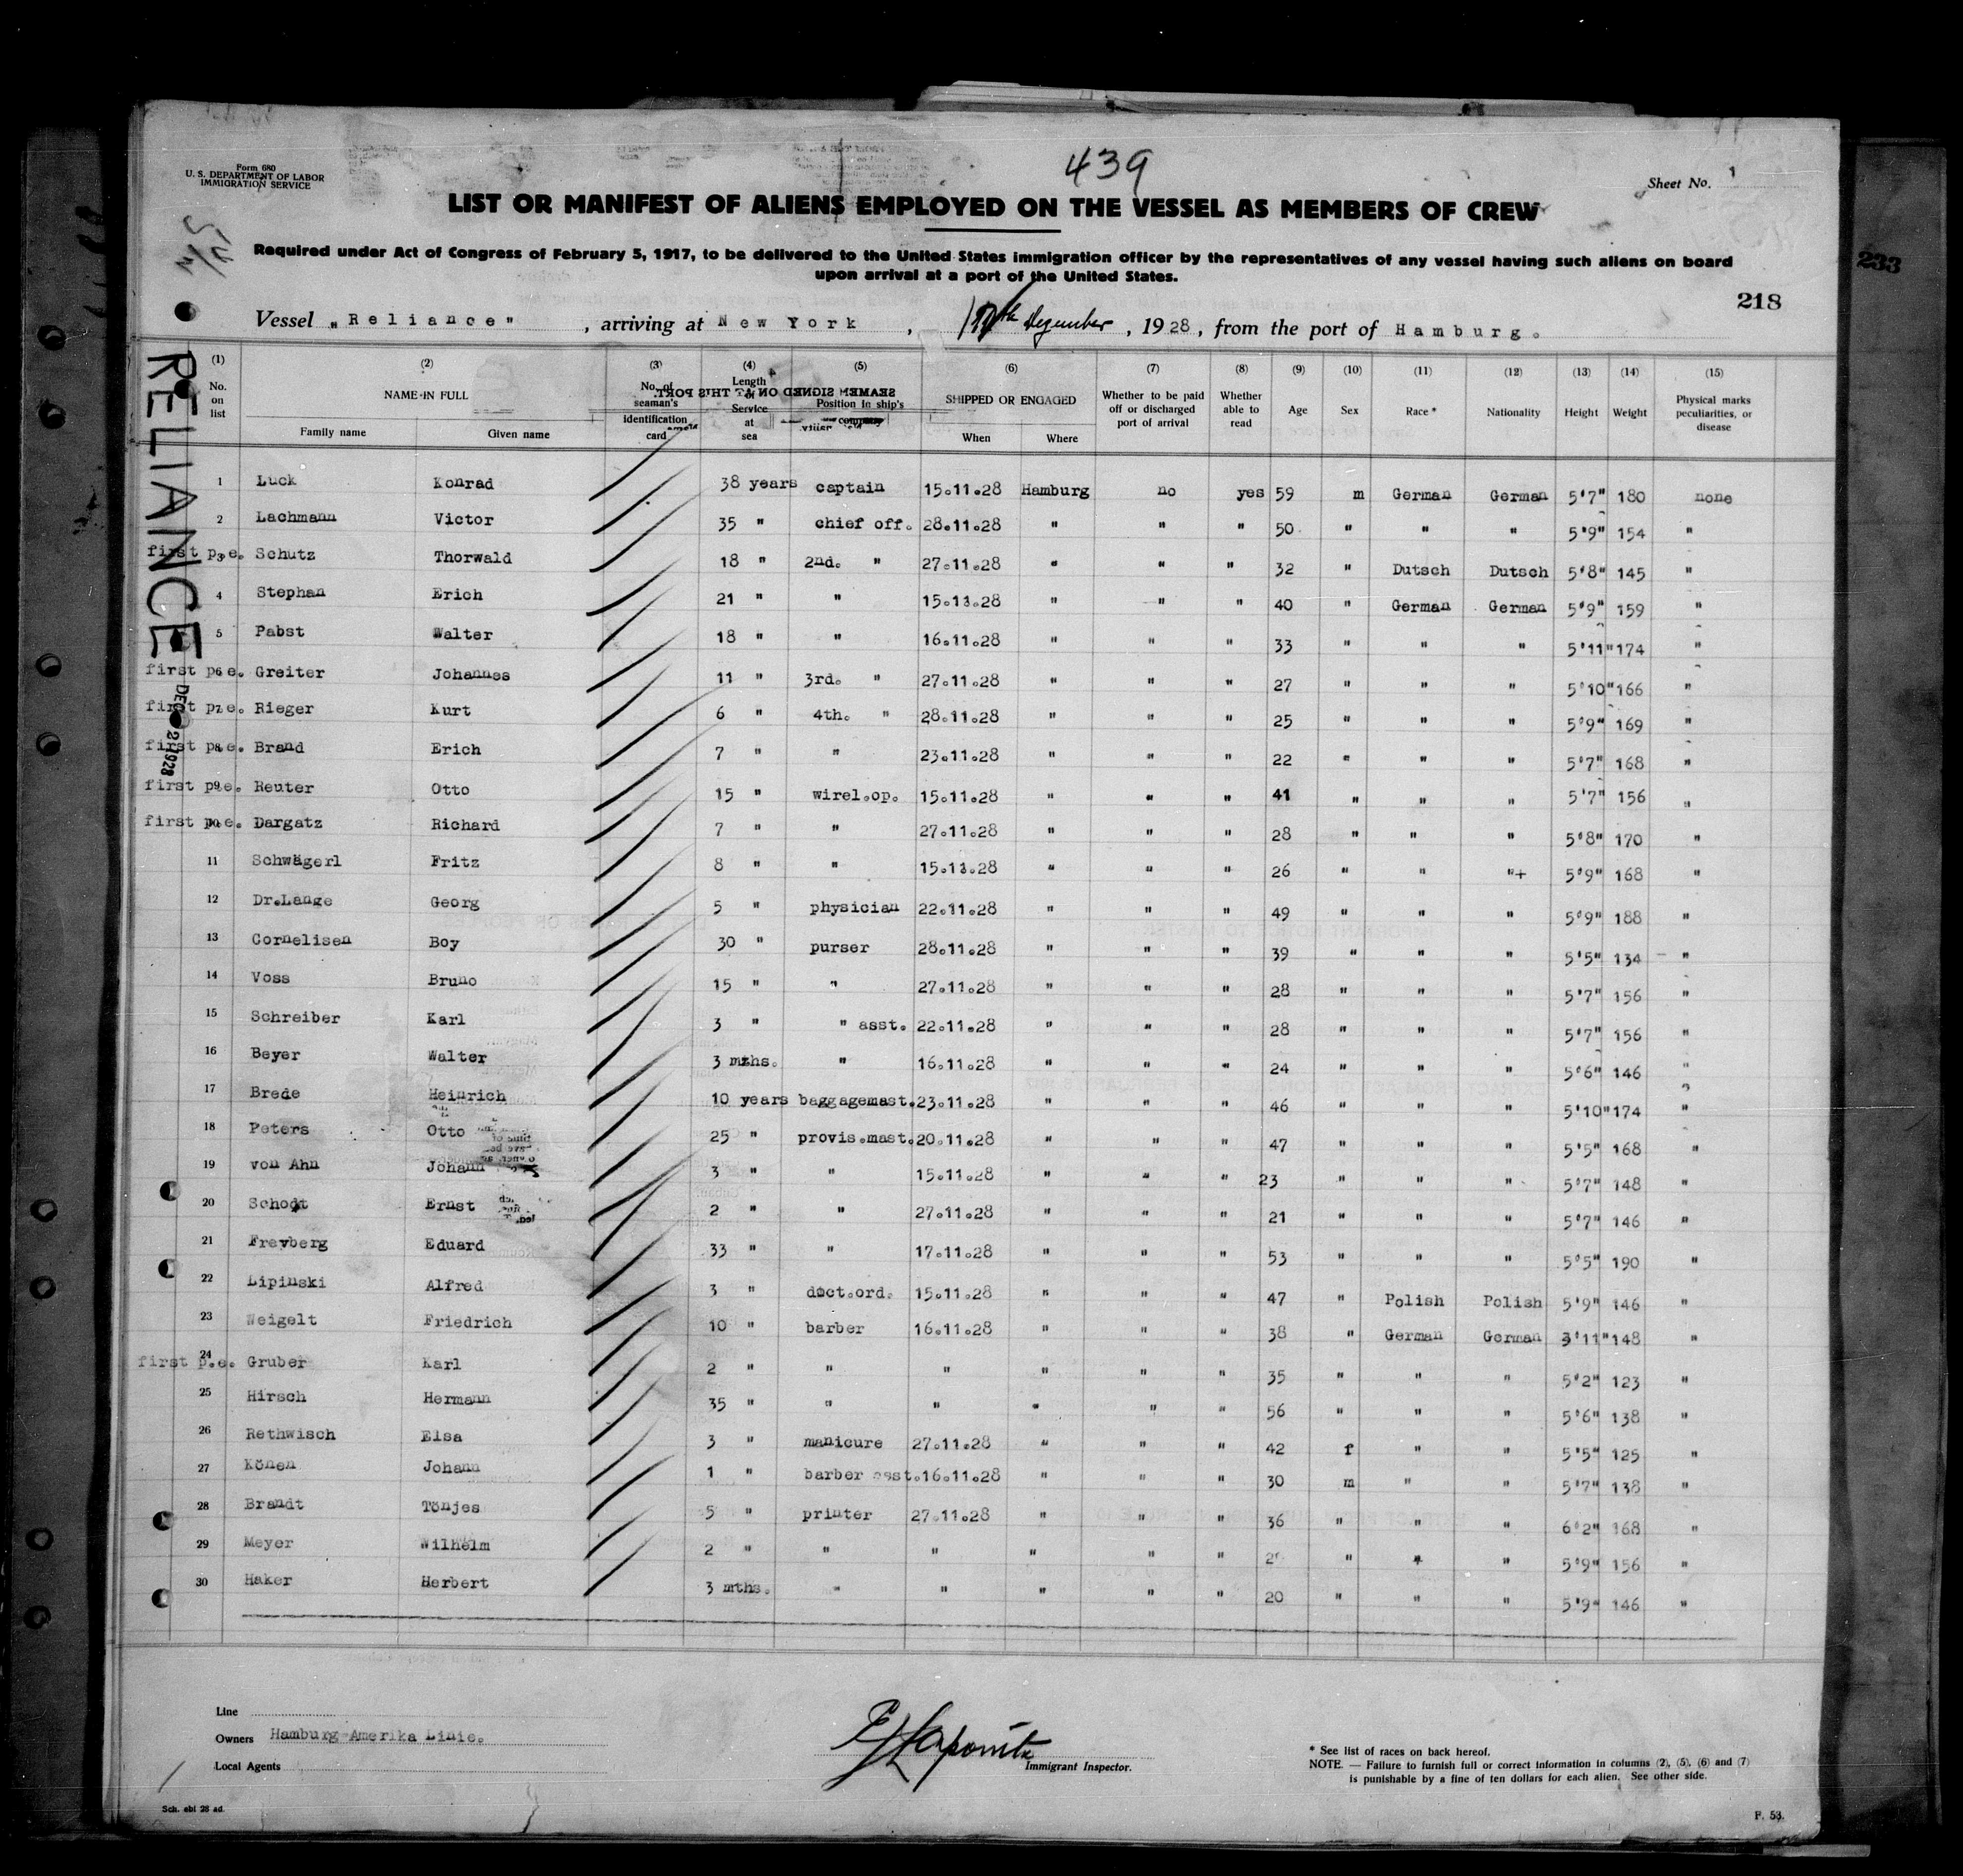 439
Form 680
U. S. DEPARTMENT OF LABOR
IMMIGRATION SERVICE
Sheet No. 1
LIST OR MANIFEST OF ALIENS EMPLOYED ON THE VESSEL AS MEMBERS OF CREW
Required under Act of Congress of February 5, 1917, to be delivered to the United States immigration officer by the representatives of any vessel having such aliens on board
upon arrival at a port of the United States.
218
233
Vessel "Reliance", arriving at New York, December, 1928, from the port of Hamburg.
RELIANCE
(1) (2) (3) (4) (5) (6) (7) (8) (9) (10) (11) (12) (13) (14) (15)
No. on list NAME IN FULL Family name Given name No. of seaman's identification card Length of Service at sea Position in ship's company SHIPPED OR ENGAGED When Where Whether to be paid off or discharged port of arrival Whether able to read Age Sex Race * Nationality Height Weight Physical marks peculiarities, or disease
SEAMEN SIGNED ON AT THIS PORT.
1 Luck Konrad 38 years captain 15.11.28 Hamburg no yes 59 m German German 5'7" 180 none
2 Lachmann Victor 35 " chief off. 28.11.28 " " " 50 " " " 5'9" 154 "
first p.e. 3 Schutz Thorwald 18 " 2nd. " 27.11.28 " " " 32 " Dutsch Dutsch 5'8" 145 "
4 Stephan Erich 21 " " 15.11.28 " " " 40 " German German 5'9" 159 "
5 Pabst Walter 18 " " 16.11.28 " " " 33 " " " 5'11" 174 "
first p.e. 6 Greiter Johannes 11 " 3rd. " 27.11.28 " " " 27 " " " 5'10" 166 "
first p.e. 7 Rieger Kurt 6 " 4th. " 28.11.28 " " " 25 " " " 5'9" 169 "
first p.e. 8 Brand Erich 7 " " 23.11.28 " " " 22 " " " 5'7" 168 "
first p.e. 9 Reuter Otto 15 " wirel.op. 15.11.28 " " " 41 " " " 5'7" 156 "
first p.e. 10 Dargatz Richard 7 " " 27.11.28 " " " 28 " " " 5'8" 170 "
11 Schwägerl Fritz 8 " " 15.11.28 " " " 26 " " "+ 5'9" 168 "
12 Dr.Lange Georg 5 " physician 22.11.28 " " " 49 " " " 5'9" 188 "
13 Cornelisen Boy 30 " purser 28.11.28 " " " 39 " " " 5'5" 134 "
14 Voss Bruno 15 " " 27.11.28 " " " 28 " " " 5'7" 156 "
15 Schreiber Karl 3 " " asst. 22.11.28 " " " 28 " " " 5'7" 156 "
16 Beyer Walter 3 mths. " 16.11.28 " " " 24 " " " 5'6" 146 "
17 Brede Heinrich 10 years baggagemast. 23.11.28 " " " 46 " " " 5'10" 174 "
18 Peters Otto 25 " provis.mast. 20.11.28 " " " 47 " " " 5'5" 168 "
19 von Ahn Johann 3 " " 15.11.28 " " " 23 " " " 5'7" 148 "
20 Schodt Ernst 2 " " 27.11.28 " " " 21 " " " 5'7" 146 "
21 Freyberg Eduard 33 " " 17.11.28 " " " 53 " " " 5'5" 190 "
22 Lipinski Alfred 3 " doct.ord. 15.11.28 " " " 47 " Polish Polish 5'9" 146 "
23 Weigelt Friedrich 10 " barber 16.11.28 " " " 38 " German German 3'11" 148 "
first p.e. 24 Gruber Karl 2 " " " " " " 35 " " " 5'2" 123 "
25 Hirsch Hermann 35 " " " " " " 56 " " " 5'6" 138 "
26 Rethwisch Elsa 3 " manicure 27.11.28 " " " 42 f " " 5'5" 125 "
27 Könen Johann 1 " barber asst. 16.11.28 " " " 30 m " " 5'7" 138 "
28 Brandt Tönjes 5 " printer 27.11.28 " " " 36 " " " 6'2" 168 "
29 Meyer Wilhelm 2 " " " " " " " " " 5'9" 156 "
30 Haker Herbert 3 mths. " " " " " 20 " " " 5'9" 146 "
Line
Owners Hamburg-Amerika Linie.
Local Agents
Immigrant Inspector.
* See list of races on back hereof.
NOTE. — Failure to furnish full or correct information in columns (2), (5), (6) and (7)
is punishable by a fine of ten dollars for each alien. See other side.
Sch. ebl 28 ad.
F. 53.